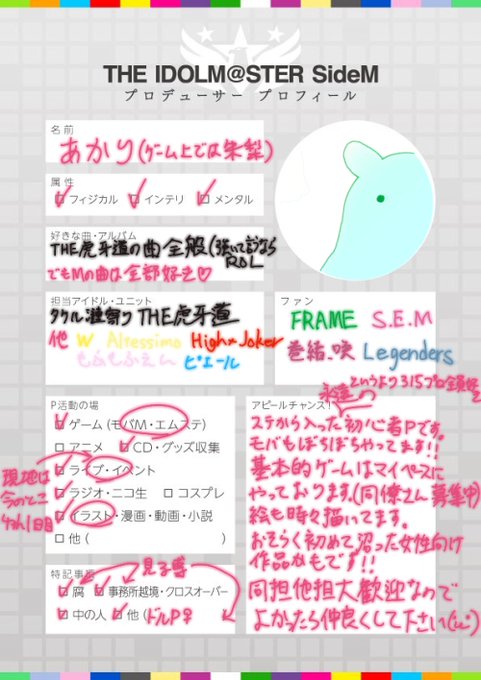 THE IDOLM@STER SideM
プロデューサー プロフィール
名前
あかり(ゲーム上では朱梨)
属性
フィジカル インテリ メンタル
好きな曲・アルバム
THE虎牙道の曲全般(強いて言うなら
RDL
でもMの曲は全部好き♡
担当アイドル・ユニット
タケル 漣 寄り THE虎牙道
他 W Altessimo High×Joker
もふもふえん ピエール
ファン
FRAME S.E.M
巻緒、咲 Legenders
というより315プロ全員好き
P活動の場
ゲーム(モバM・エムステ)
アニメ CD・グッズ収集
ライブ・イベント
ラジオ・ニコ生 コスプレ
イラスト・漫画・動画・小説
他( )
現地は
今のとこ
4th1日目
特記事項
見る専
腐 事務所越境・クロスオーバー
中の人 他(ドルP♀
アピールチャンス!
永遠
ステから入った初心者Pです。
モバもぼちぼちやってます!!
基本的ゲームはマイペースに
やっております。(同僚さん募集中)
絵も時々描いてます。
おそらく初めて沼った女性向け
作品かもです!!
同担他担大歓迎なので
よかったら仲良くして下さい